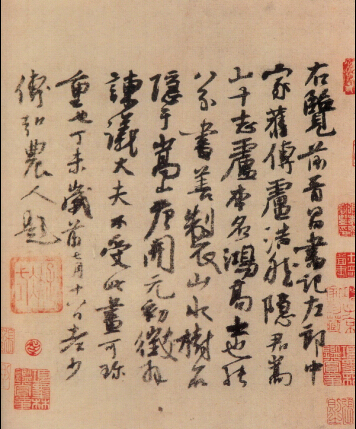 右覽前晉昌書記左郎中
家舊傳盧浩然隱居嵩
山十志盧本名鴻高士也能
八分書善製山水樹石
隱于嵩山唐開元初徵拜
諫議大夫不受此畫可珎
重也丁未歲前七月十八日老少
傅弘農人題